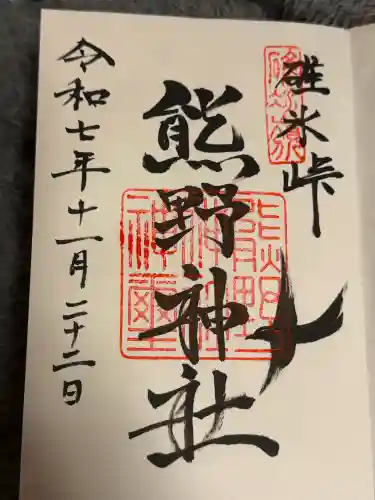 碓氷峠
熊野神社
令和七年十一月二十二日